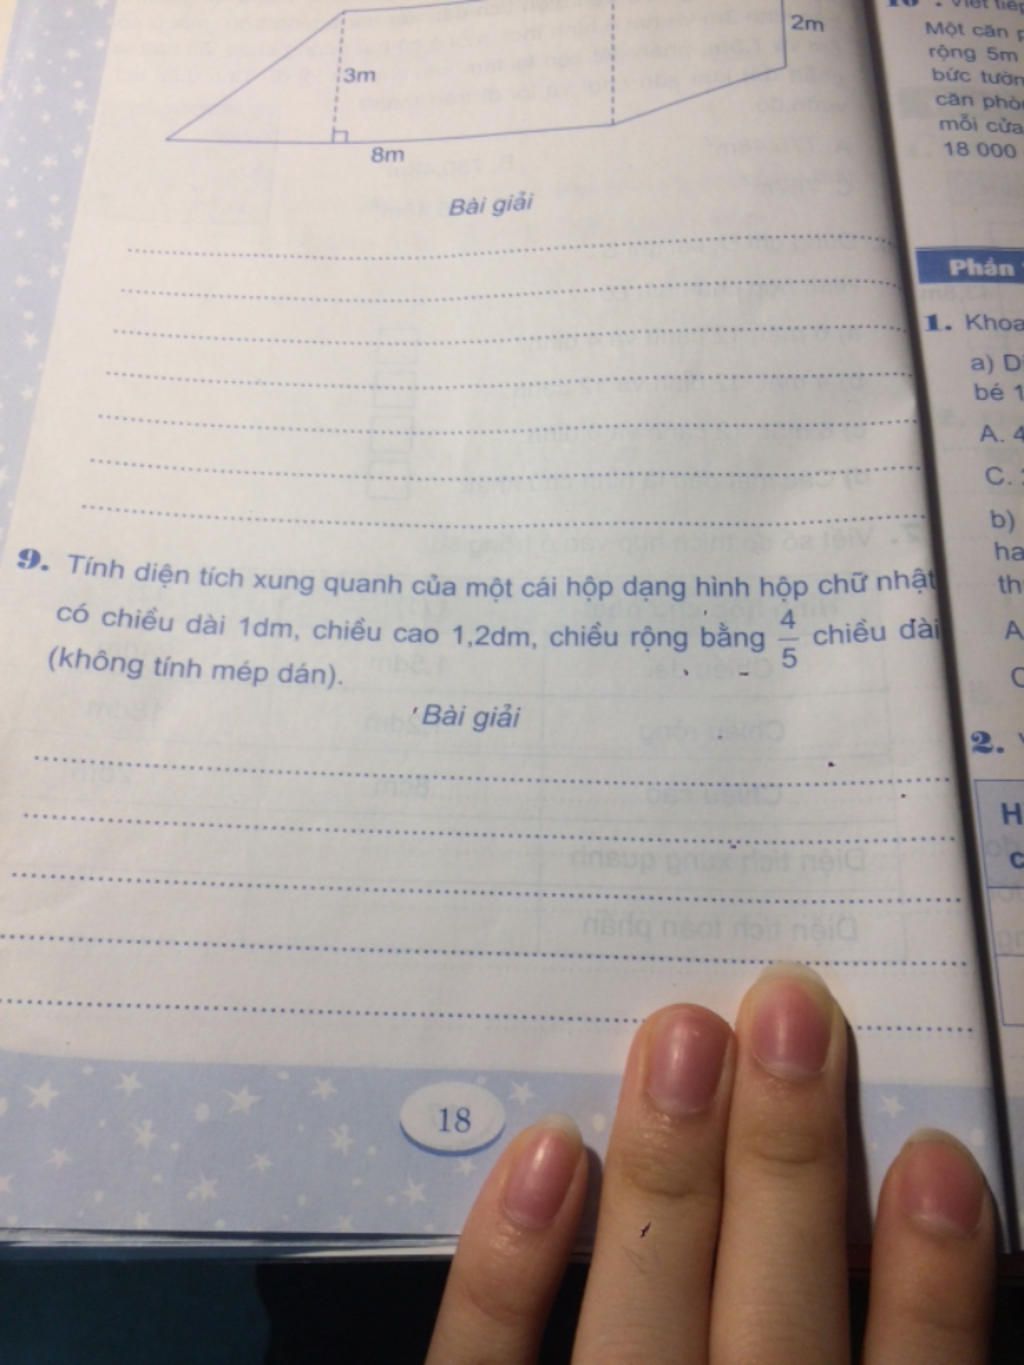 2m
3m
8m
Bài giải
9. Tính diện tích xung quanh của một cái hộp dạng hình hộp chữ nhật
có chiều dài 1dm, chiều cao 1,2dm, chiều rộng bằng 4/5 chiều dài
(không tính mép dán).
Bài giải
18
Một căn
rộng 5m
bức
căn
mỗi cửa
18 000
Phần
1.
a)
bé 1
A. 4
C.
b)
2.